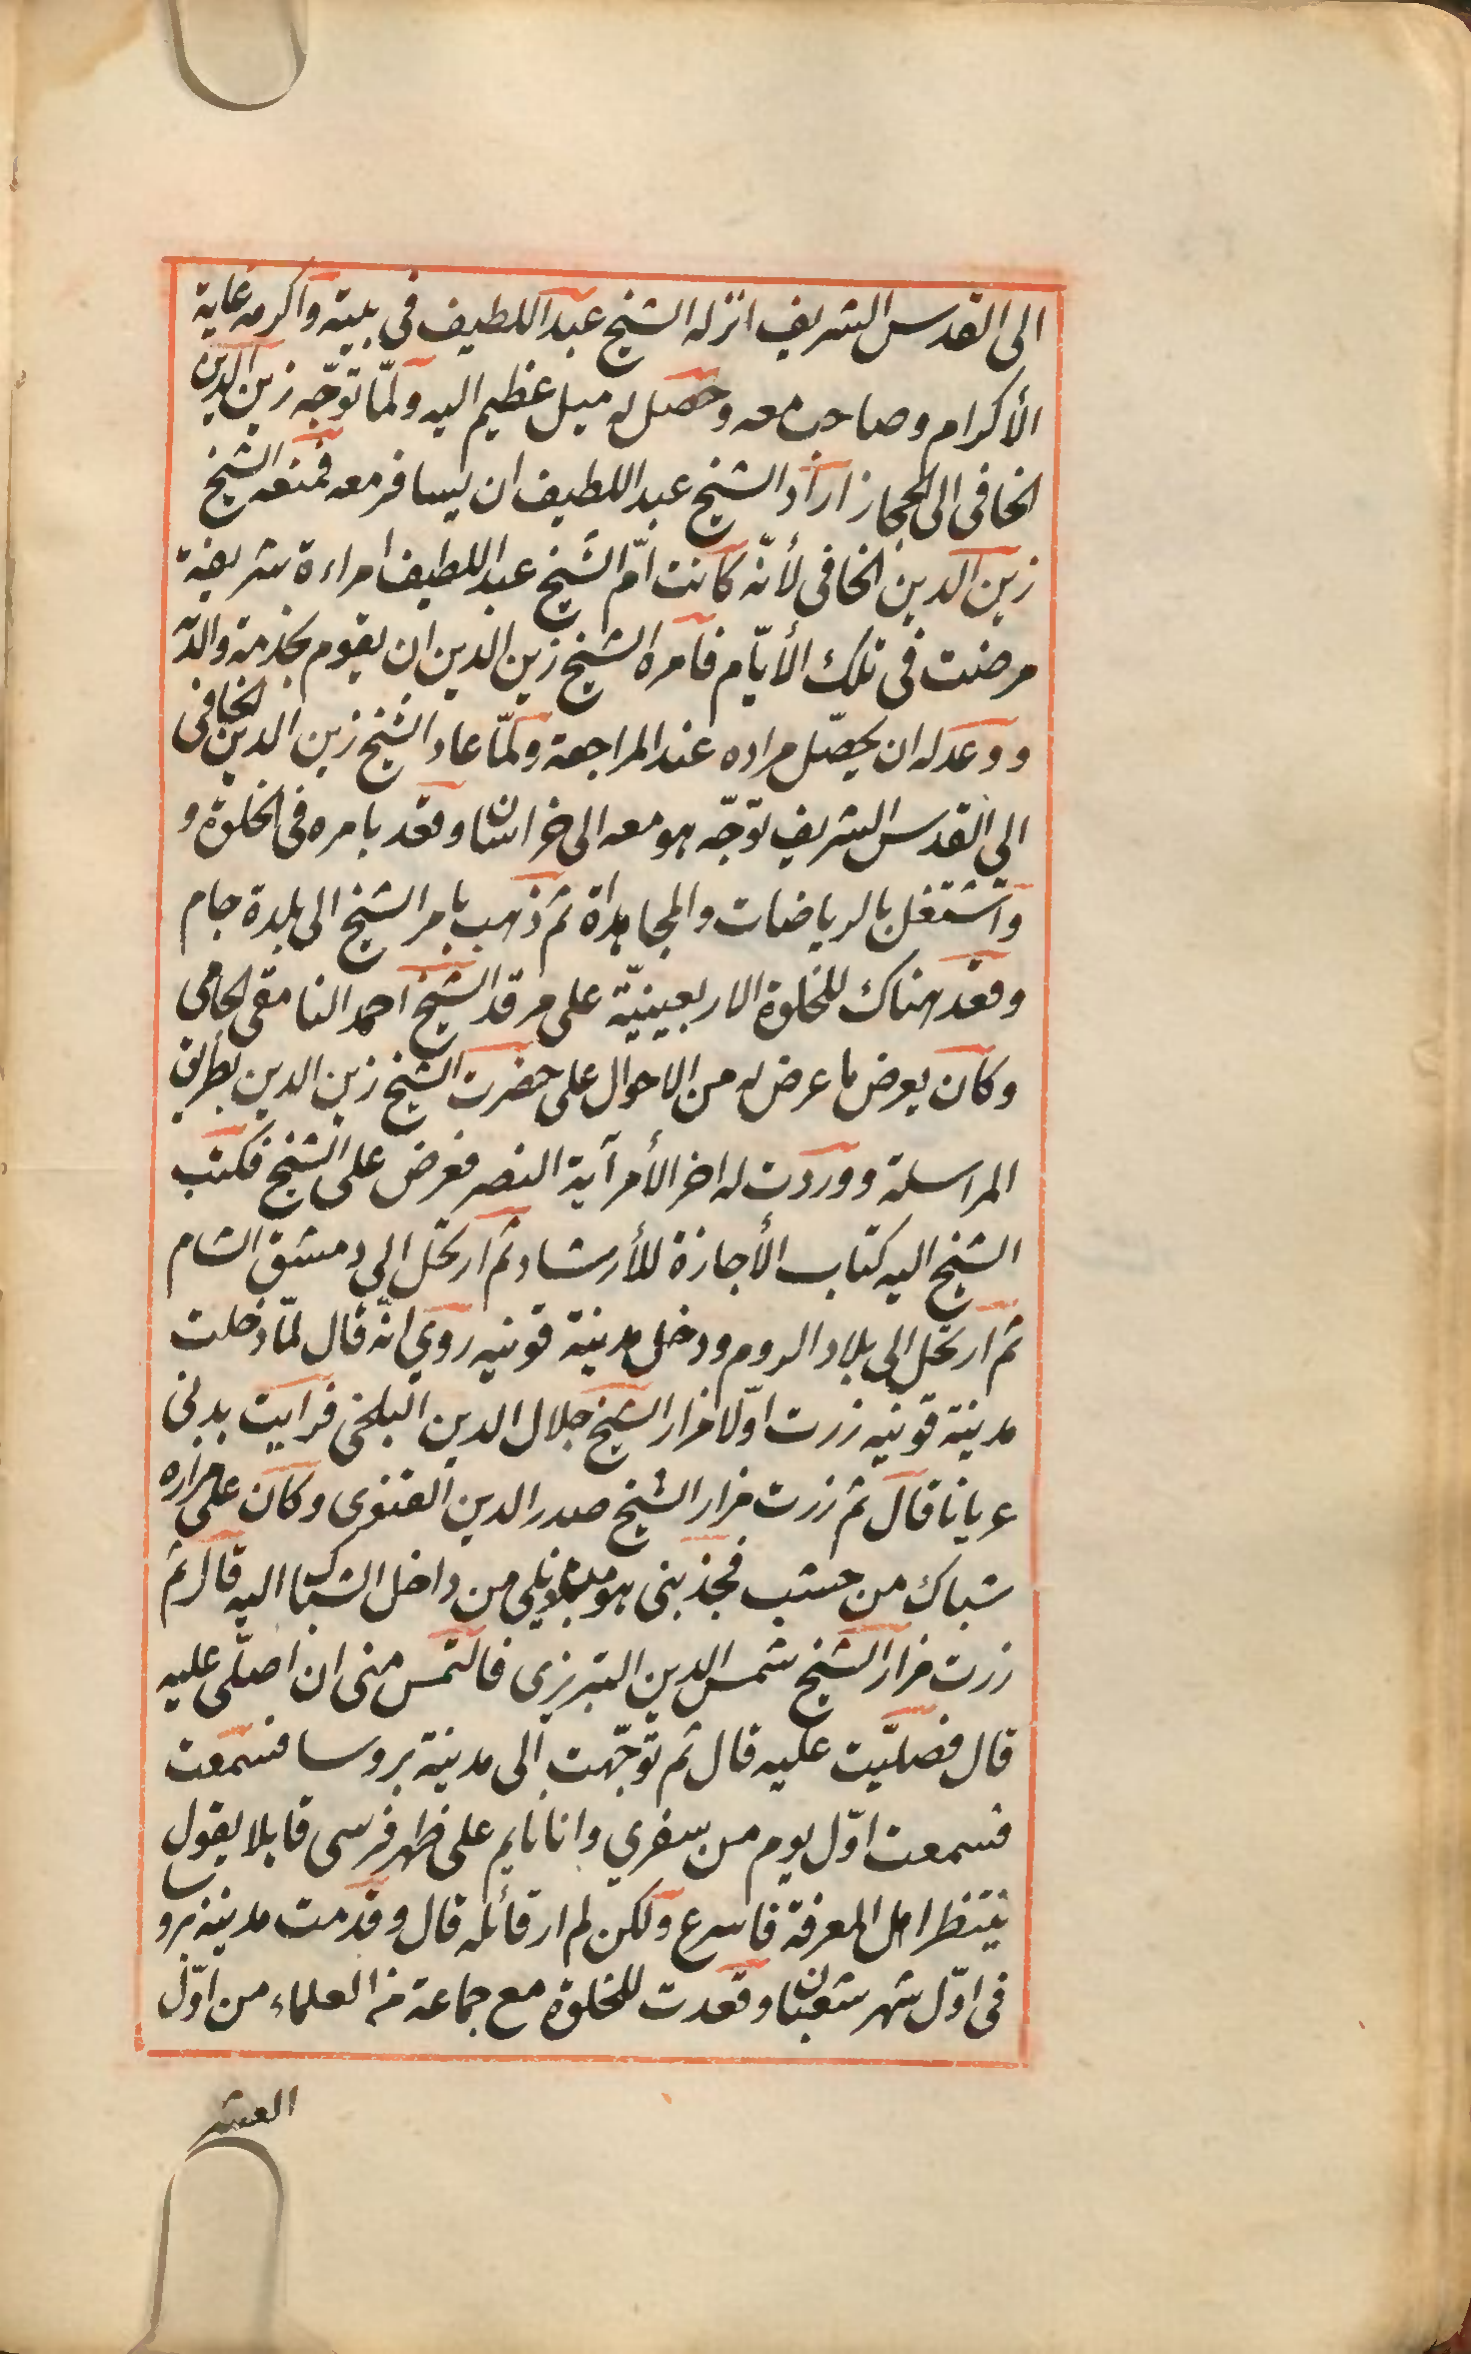 الى القدس الشريف انزله الشيخ عبد اللطيف فى بيته واكرمه غاية
الأكرام وصاحب معه وحصل له ميل عظيم اليه ولمّا توجّه زين الدين
الخافى الى الحجاز اراد الشيخ عبد اللطيف ان يسافر معه فمنعه الشيخ
زين الدين الخافى لأنّه كانت امّ الشيخ عبد اللطيف امراءة شريفة
مرضت فى تلك الأيّام فامره الشيخ زين الدين ان يقوم بخدمة والدته
ووعد له ان يحصّل مراده عند المراجعة ولمّا عاد الشيخ زين الدين الخافى
الى القدس الشريف توجّه هو معه الى خراسان وقعد بامره فى الخلوة و
واشتغل بالرياضات والمجاهداة ثم ذهب بامر الشيخ الى بلدة جام
وقعد هناك للخلوة الاربعينيّة على مرقد الشيخ احمد النامقى الجامى
وكان يعرض ما عرض له من الاحوال على حضرت الشيخ زين الدين بطريق
المراسلة ووردت له اخر الأمر آية النصر فعرض على الشيخ فكتب
الشيخ اليه كتاب الأجازة للأرشاد ثم ارتحل الى دمشق الشام
ثم ارتحل الى بلاد الروم ودخل مدينة قونيه روي انّه قال لمّا دخلت
مدينة قونيه زرت اوّلا مزار الشيخ جلال الدين البلخى فرايت بدنى
عريانا قال ثم زرت مزار الشيخ صدر الدين القنوى وكان على مزاره
شباك من خشب فجذبنى هو من داخل الشباك اليه قال ثم
زرت مزار الشيخ شمس الدين التبريزى فالتمس منى ان اصلّى عليه
قال فصلّيت عليه قال ثم توجّهت الى مدينة بروسا فسمعت
فسمعت اوّل يوم من سفري وانا نايم على ظهر فرسى قايلا يقول
ينتظر اهل المعرفة فاسرع ولكن لم ار قائله قال وقدمت مدينة بروسا
فى اوّل شهر شعبان وقعدت للخلوة مع جماعة من العلماء من اوّل
العشر